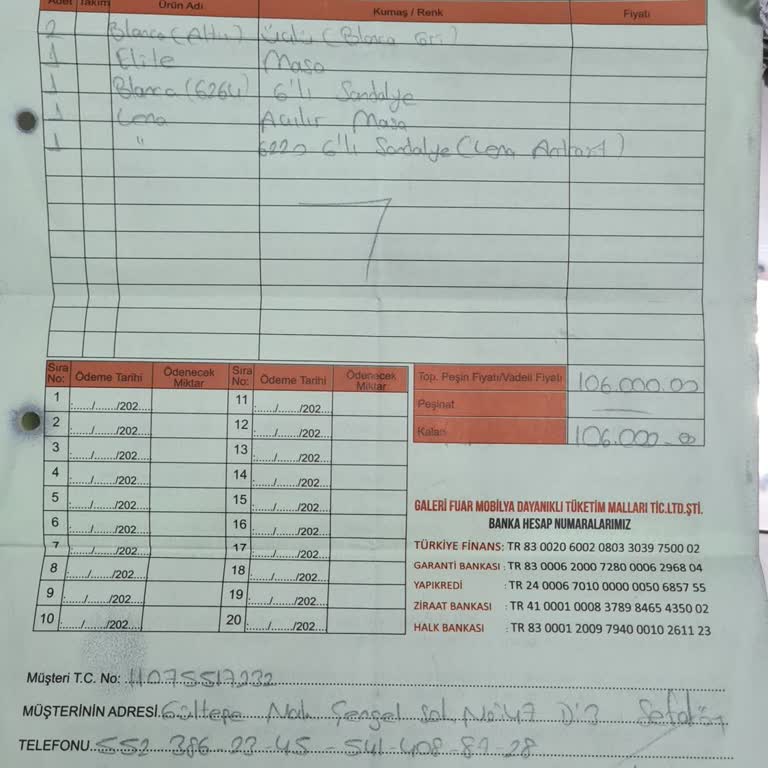 Adet Takım Ürün Adı Kumaş / Renk Fiyatı
2 Blanca (Altın) Üçlü (Blanca Gri)
1 Elite Masa
1 Blanca (6264) 6'lı Sandalye
1 Lena Açılır Masa
1 " 6220 6'lı Sandalye (Lena Antrasit)
Sıra No: Ödeme Tarihi Ödenecek Miktar Sıra No: Ödeme Tarihi Ödenecek Miktar
1 ....../....../202.... 11 ....../....../202....
2 ....../....../202.... 12 ....../....../202....
3 ....../....../202.... 13 ....../....../202....
4 ....../....../202.... 14 ....../....../202....
5 ....../....../202.... 15 ....../....../202....
6 ....../....../202.... 16 ....../....../202....
7 ....../....../202.... 17 ....../....../202....
8 ....../....../202.... 18 ....../....../202....
9 ....../....../202.... 19 ....../....../202....
10 ....../....../202.... 20 ....../....../202....
Top. Peşin Fiyatı/Vadeli Fiyatı 106.000.00
Peşinat
Kalan 106.000.00
GALERİ FUAR MOBİLYA DAYANIKLI TÜKETİM MALLARI TİC.LTD.ŞTİ.
BANKA HESAP NUMARALARIMIZ
TÜRKİYE FİNANS: TR 83 0020 6002 0803 3039 7500 02
GARANTİ BANKASI : TR 83 0006 2000 7280 0006 2968 04
YAPIKREDİ : TR 24 0006 7010 0000 0050 6857 55
ZİRAAT BANKASI : TR 41 0001 0008 3789 8465 4350 02
HALK BANKASI : TR 83 0001 2009 7940 0010 2611 23
Müşteri T.C. No: 11075517232
MÜŞTERİNİN ADRESİ. Gültepe Mah. Çengel Sok. No:47 D:3
TELEFONU. 552 386-23-45 - 541-408-81-28